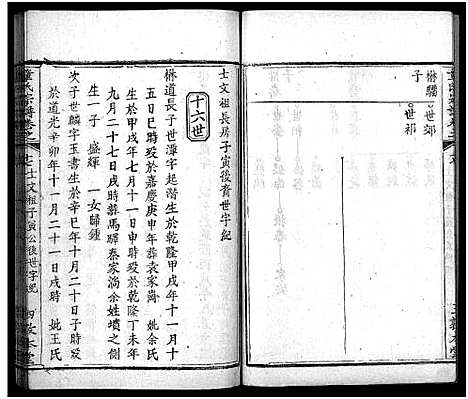 楙驕
子
世郊
世祁
士文祖長房子寅後賚世字紀
十六世
楙道長子世漳字起潛生於乾隆甲戌年十一月十
五日巳時歿於嘉慶庚申年葬袁家崗 妣余氏
生於甲戌年七月十一日申時歿於乾隆丁未年
九月二十七日戌時葬馬驛秦家滳余姓墳之側
生一子 盛輝 一女歸鍾
次子世麟字玉書生於辛巳年十月二十日子時歿
於道光辛卯年十一月二十一日戌時 妣王氏
童氏宗譜卷之
士文祖子寅公後世字紀
四教本堂